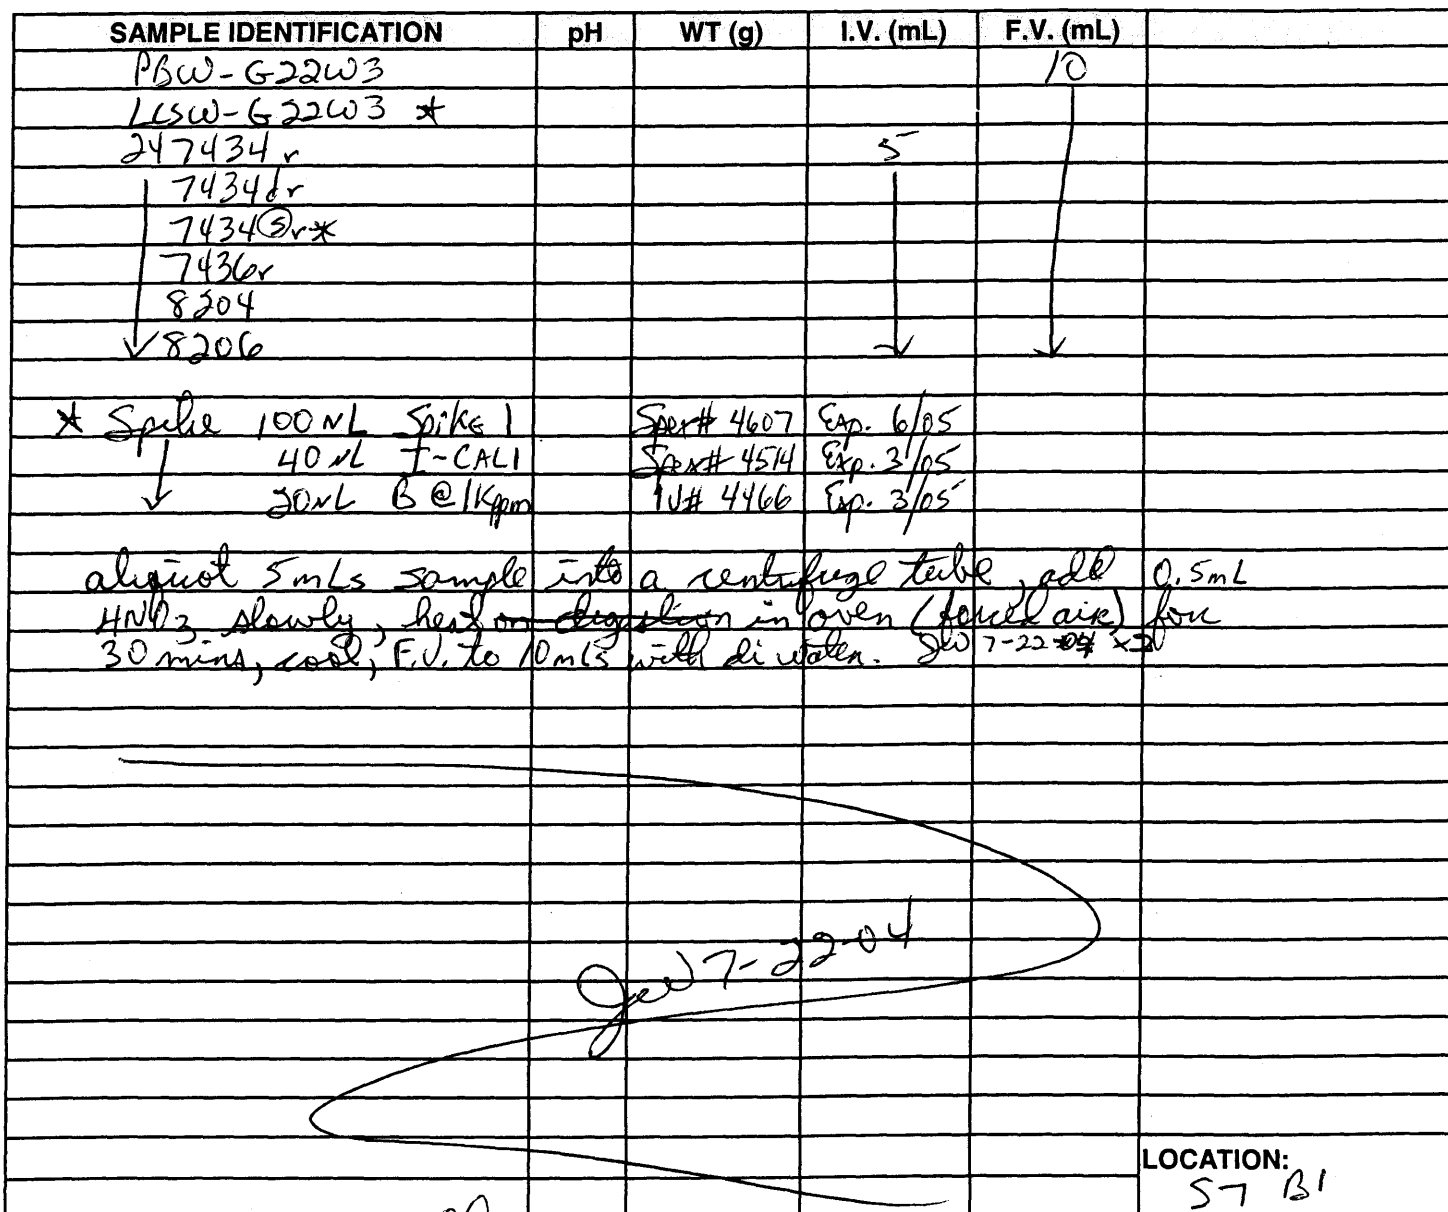 SAMPLE IDENTIFICATION pH WT (g) I.V. (mL) F.V. (mL)
PBW-G22W3 10
LCSW-G22W3 *
247434r 5
7434dr
7434Ⓢr*
7436r
8204
8206
* Spike 100 µL Spike 1 Spex# 4607 Exp. 6/05
40 µL I-CAL1 Spex# 4514 Exp. 3/05
20 µL B @ 1Kppm IV# 4466 Exp. 3/05
aliquot 5 mLs sample into a centrifuge tube, add 0.5mL
HNO3 slowly, heat on digestion in oven (forced air) for
30 mins, cool, F.V. to 10 mLs with di water. JW 7-22-04
JW 7-22-04
LOCATION:
S7 B1